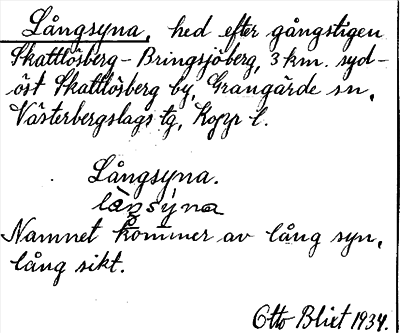 Långsyna, hed efter gångstigen
Skattlösberg - Bringsjöberg, 3 km. syd-
öst Skattlösberg by, Grangärde sn,
Västerbergslags tg, Kopp l.
Långsyna.
làṅsyna
Namnet kommer av lång syn,
lång sikt.
Otto Blixt 1934.